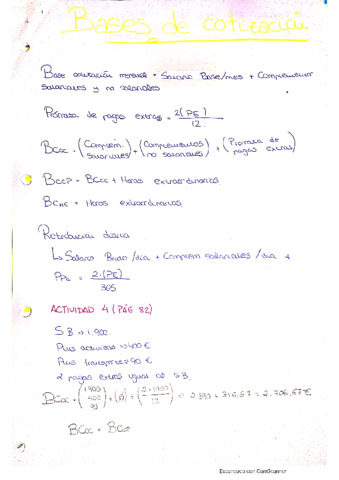 Bases de cotización
Base cotización mensual = Salario Base/mes + Complementos
salariales y no salariales
Prorrata de pagas extras = 2(PE)
12
BCcc = (Complem. salariales) + (Complementos no salariales) + (Prorrata de pagas extras)
BCCP = BCcc + Horas extraordinarias
BCHE = Horas extraordinarias.
Retribución diaria
↳ Salario Base/día + Complem salariales/día +
PPE = 2·(PE)
365
ACTIVIDAD 4 (PÁG 82)
S.B → 1.900
Plus actividad → 400 €
Plus transporte → 90 €
2 pagas extras igual al S.B.
BCcc = (1900 400 90) + (Ø) + (2·1900 / 12) → 2390 + 316,67 = 2.706,67 €
BCcc = BCCP
Escaneado con CamScanner